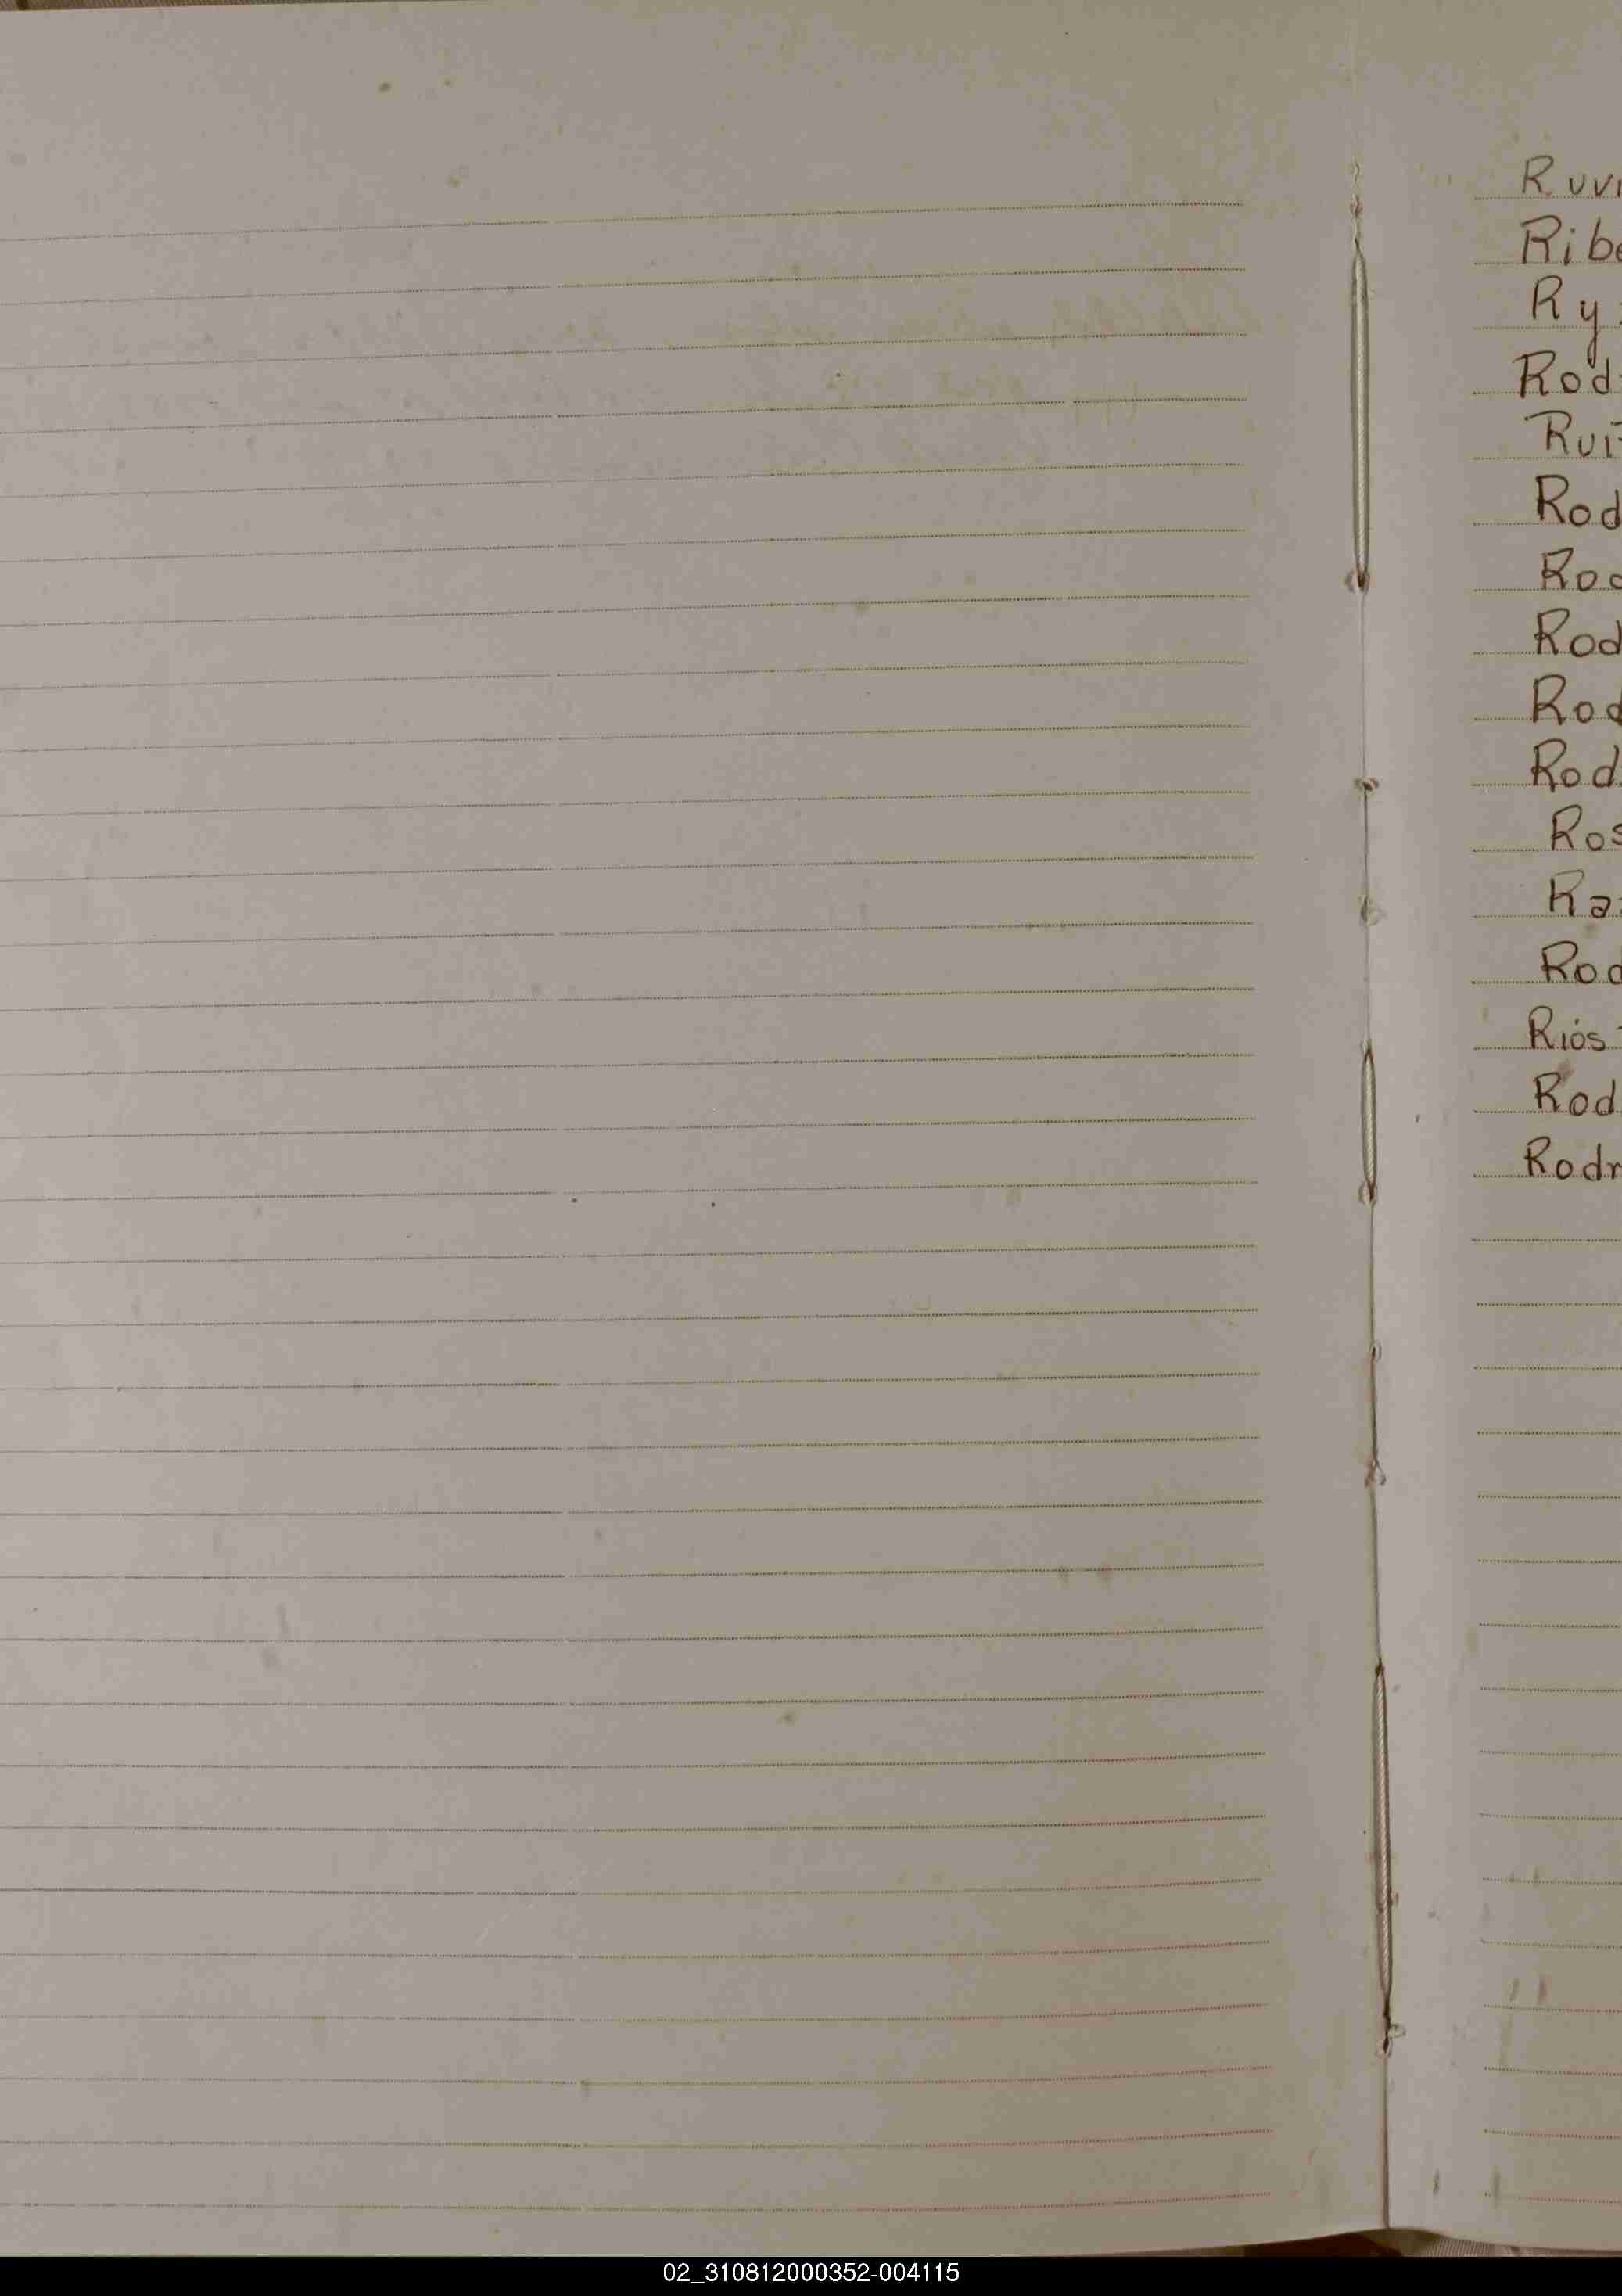 Ruvi
Ribe
Ry
Rod
Rui
Rod
Rod
Rod
Rod
Rod
Ros
Ra
Rod
Ríos
Rod
Rodr
02_310812000352-004115